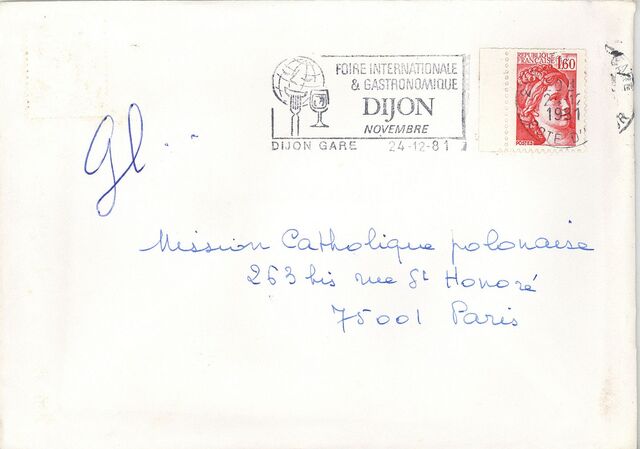 FOIRE INTERNATIONALE
& GASTRONOMIQUE
DIJON
NOVEMBRE
DIJON GARE 24-12-81
REPUBLIQUE
FRANÇAISE
1,60
POSTES
1981
COTE D'
Gl
Mission Catholique polonaise
263 bis rue St Honoré
75001 Paris